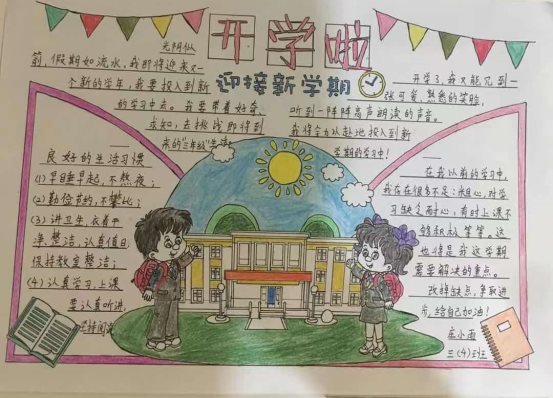 开学啦
迎接新学期
光阴似
箭,假期如流水,我即将迎来又一
个新的学年,我要投入到新
的学习中去。我要带着好奇、
求知,去挑战即将到
来的"三年级"
开学了,我又能见到一
张可爱、熟悉的笑脸,
听到一阵阵高声朗读的声音。
我将全力以赴地投入到新
学期的学习中!
良好的生活习惯
(1)早睡早起,不熬夜;
(2)勤俭节约,不攀比;
(3)讲卫生,衣着干
净整洁,认真值日,
保持教室整洁;
(4)认真学习,上课
要认真听讲,
坚持阅读
在我以前的学习中,
我存在很多不足:粗心,对学
习缺乏耐心,有时上课不
够积极等等,这
也将是我这学期
需要解决的重点。
改掉缺点,争取进
步,给自己加油!
三(4)班